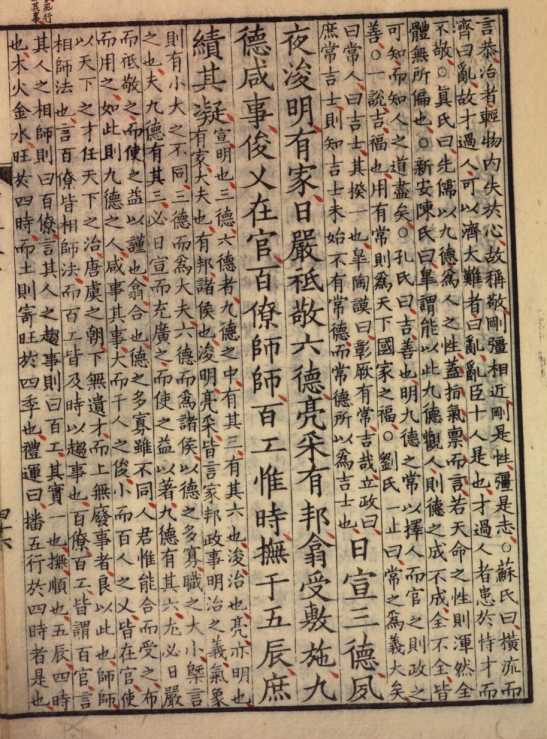 言恭治者輕物內失於心故稱敬剛彊相近剛是性彊是志○蘇氏曰橫流而
齊曰亂故才過人可以濟大難者曰亂亂臣十人是也才過人者患於恃才而
不敬○眞氏曰先儒以九德爲人之性蓋指氣稟而言若天命之性則渾然全
體無所偏也○新安陳氏曰臯謂能以此九德觀人則德之成不成全不全皆
可知而知人之道盡矣○孔氏曰吉善也明九德之常以擇人而官之則政之
善○一說吉福也用有常則爲天下國家之福○劉氏一止曰常之爲義大矣
曰常人曰吉士其揆一也臯陶謨曰彰厥有常吉哉立政曰
庶常吉士則知吉士未始不有常德而常德所以爲吉士也
日宣三德夙
夜浚明有家日嚴祗敬六德亮采有邦翕受敷施九
德咸事俊乂在官百僚師師百工惟時撫于五辰庶
績其凝
宣明也三德六德者九德之中有其三有其六也浚治也亮亦明也
有家大夫也有邦諸侯也浚明亮采皆言家邦政事明治之義氣象
則有小大之不同三德而爲大夫六德而爲諸侯以德之多寡職之大小槩言
之也夫九德有其三必日宣而充廣之而使之益以著九德有其六尤必日嚴
而祗敬之而使之益以謹也翕合也德之多寡雖不同人君惟能合而受之布
而用之如此則九德之人咸事其事大而千人之俊小而百人之乂皆在官使
以天下之才任天下之治唐虞之朝下無遺才而上無廢事者良以此也師師
相師法也言百僚皆相師法而百工皆及時以趨事也百僚百工皆謂百官言
其人之相師則曰百僚言其人之趨事則曰百工其實一也撫順也五辰四時
也木火金水旺於四時而土則寄旺於四季也禮運曰播五行於四時者是也